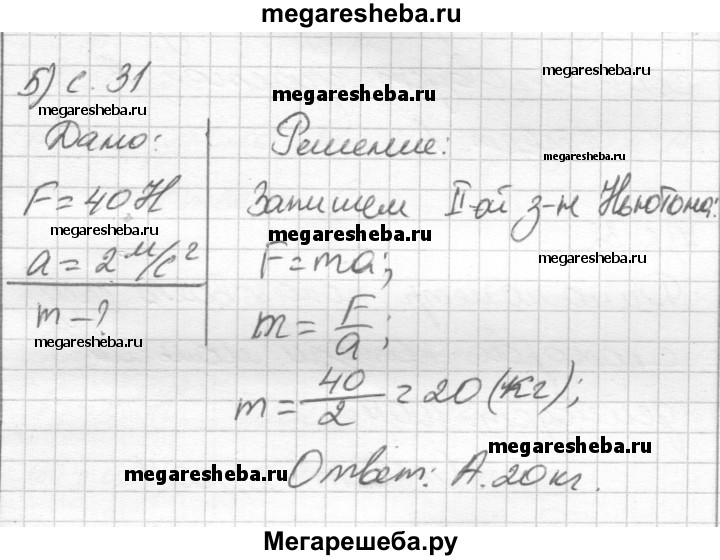 megaresheba.ru
5) с. 31
megaresheba.ru
megaresheba.ru
megaresheba.ru
Дано:
Решение:
megaresheba.ru
F = 40 Н
Запишем II-ой з-н Ньютона:
megaresheba.ru
megaresheba.ru
a = 2 м/с²
F = ma;
m - ?
megaresheba.ru
m = F/a;
megaresheba.ru
m = 40/2 = 20 (кг);
megaresheba.ru
megaresheba.ru
Ответ: А. 20 кг.
Мегарешеба.ру